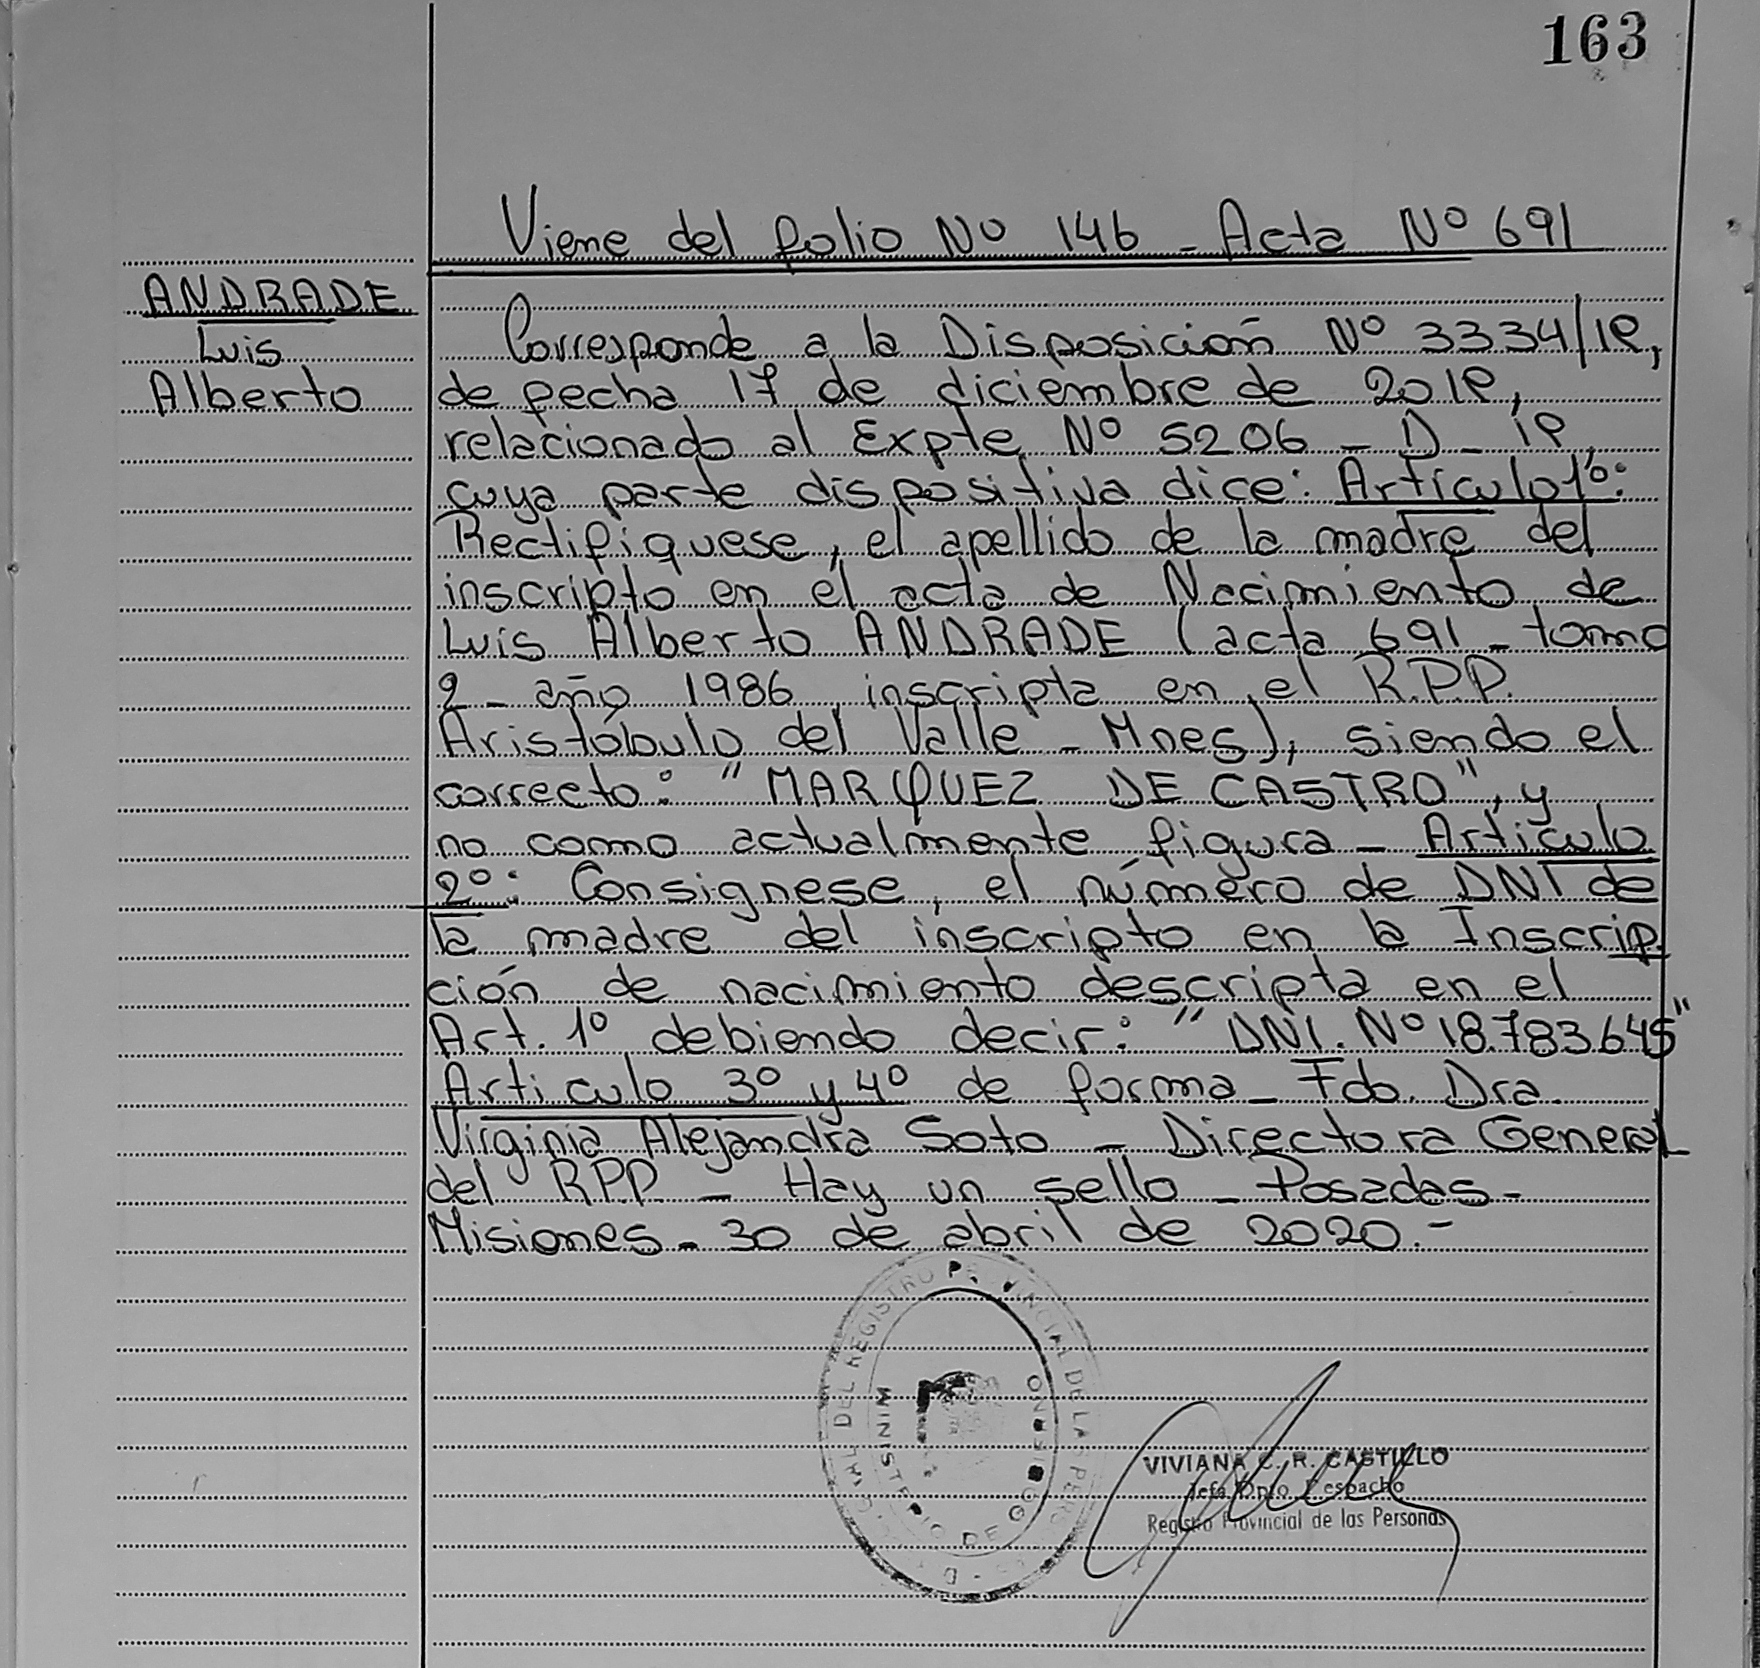 163
Viene del folio Nº 146 - Acta Nº 691
ANDRADE
Luis
Alberto
Corresponde a la Disposición Nº 3334/19,
de fecha 17 de diciembre de 2019,
relacionado al Expte Nº 5206 - D - 19,
cuya parte dispositiva dice: Artículo 1º:
Rectifiquese, el apellido de la madre del
inscripto en el acta de Nacimiento de
Luis Alberto ANDRADE (acta 691 - tomo
2 - año 1986, inscripta en el R.P.P.
Aristóbulo del Valle - Mnes), siendo el
correcto: "MARQUEZ DE CASTRO", y
no como actualmente figura - Artículo
2º: Consignese, el número de DNI de
la madre del inscripto en la Inscrip
ción de nacimiento descripta en el
Art. 1º debiendo decir: "DNI. Nº 18.783.645"
Articulo 3º y 4º de forma - Fdo. Dra.
Virginia Alejandra Soto - Directora General
del RPP - Hay un sello - Posadas -
Misiones - 30 de abril de 2020.-
REGISTRO PROVINCIAL DE LAS
MINISTERIO DE GOBIERNO
VIVIANA C. R. CASTILLO
Jefa Dpto. Despacho
Registro Provincial de las Personas